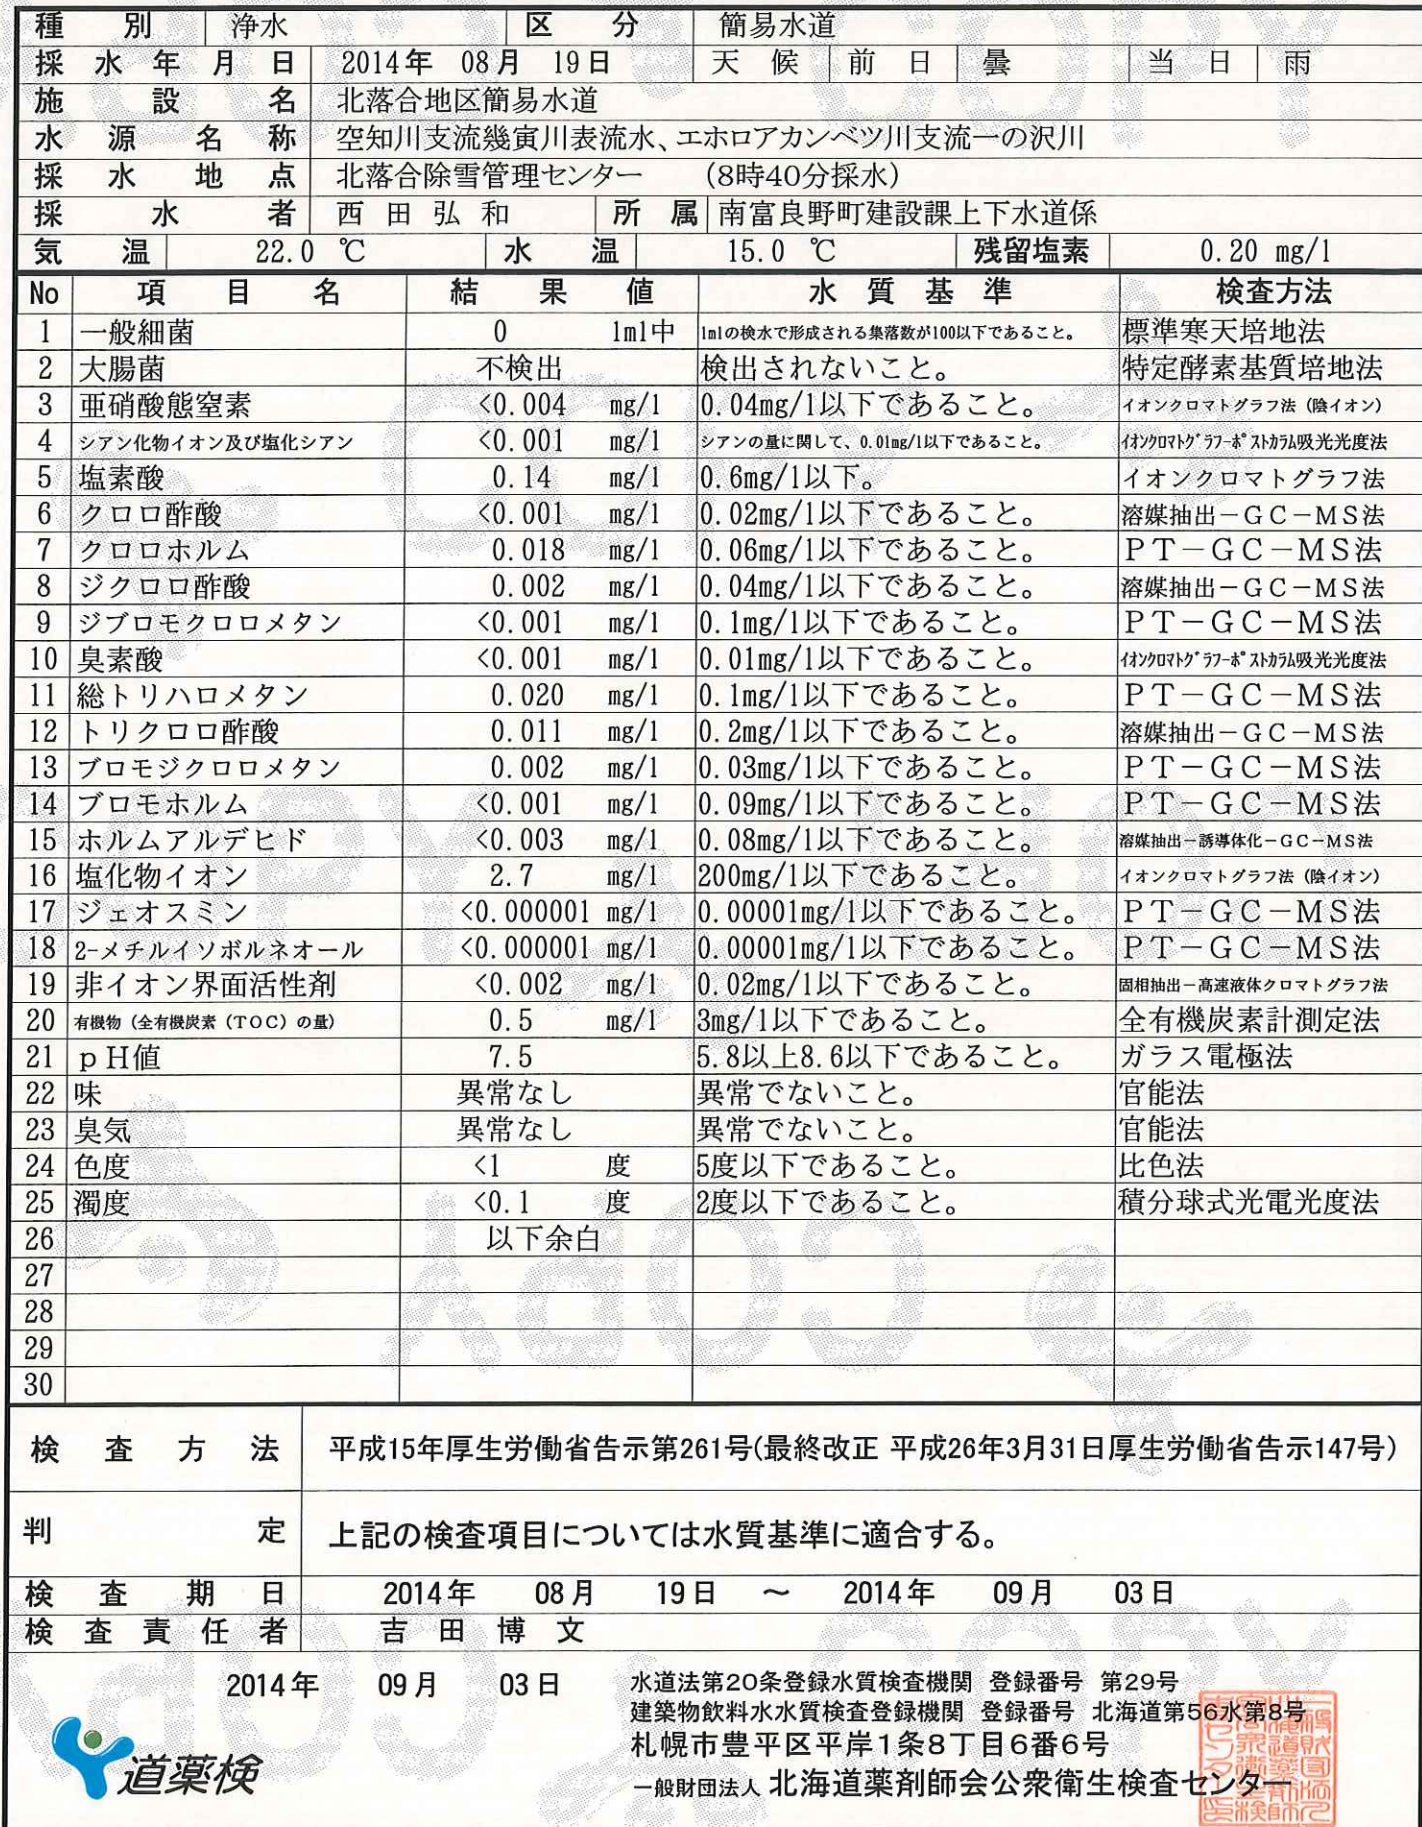 種別 浄水 区分 簡易水道
採水年月日 2014年 08月 19日 天候 前日 曇 当日 雨
施設名 北落合地区簡易水道
水源名称 空知川支流幾寅川表流水、エホロアカンベツ川支流一の沢川
採水地点 北落合除雪管理センター (8時40分採水)
採水者 西田弘和 所属 南富良野町建設課上下水道係
気温 22.0 ℃ 水温 15.0 ℃ 残留塩素 0.20 mg/l
No 項目名 結果値 水質基準 検査方法
1 一般細菌 0 1ml中 1mlの検水で形成される集落数が100以下であること。 標準寒天培地法
2 大腸菌 不検出 検出されないこと。 特定酵素基質培地法
3 亜硝酸態窒素 <0.004 mg/l 0.04mg/l以下であること。 イオンクロマトグラフ法（陰イオン）
4 シアン化物イオン及び塩化シアン <0.001 mg/l シアンの量に関して、0.01mg/l以下であること。 ｲｵﾝｸﾛﾏﾄｸﾞﾗﾌ-ﾎﾟｽﾄｶﾗﾑ吸光光度法
5 塩素酸 0.14 mg/l 0.6mg/l以下。 イオンクロマトグラフ法
6 クロロ酢酸 <0.001 mg/l 0.02mg/l以下であること。 溶媒抽出－GC－MS法
7 クロロホルム 0.018 mg/l 0.06mg/l以下であること。 PT－GC－MS法
8 ジクロロ酢酸 0.002 mg/l 0.04mg/l以下であること。 溶媒抽出－GC－MS法
9 ジブロモクロロメタン <0.001 mg/l 0.1mg/l以下であること。 PT－GC－MS法
10 臭素酸 <0.001 mg/l 0.01mg/l以下であること。 ｲｵﾝｸﾛﾏﾄｸﾞﾗﾌ-ﾎﾟｽﾄｶﾗﾑ吸光光度法
11 総トリハロメタン 0.020 mg/l 0.1mg/l以下であること。 PT－GC－MS法
12 トリクロロ酢酸 0.011 mg/l 0.2mg/l以下であること。 溶媒抽出－GC－MS法
13 ブロモジクロロメタン 0.002 mg/l 0.03mg/l以下であること。 PT－GC－MS法
14 ブロモホルム <0.001 mg/l 0.09mg/l以下であること。 PT－GC－MS法
15 ホルムアルデヒド <0.003 mg/l 0.08mg/l以下であること。 溶媒抽出－誘導体化－GC－MS法
16 塩化物イオン 2.7 mg/l 200mg/l以下であること。 イオンクロマトグラフ法（陰イオン）
17 ジェオスミン <0.000001 mg/l 0.00001mg/l以下であること。 PT－GC－MS法
18 2-メチルイソボルネオール <0.000001 mg/l 0.00001mg/l以下であること。 PT－GC－MS法
19 非イオン界面活性剤 <0.002 mg/l 0.02mg/l以下であること。 固相抽出－高速液体クロマトグラフ法
20 有機物（全有機炭素（TOC）の量） 0.5 mg/l 3mg/l以下であること。 全有機炭素計測定法
21 pH値 7.5 5.8以上8.6以下であること。 ガラス電極法
22 味 異常なし 異常でないこと。 官能法
23 臭気 異常なし 異常でないこと。 官能法
24 色度 <1 度 5度以下であること。 比色法
25 濁度 <0.1 度 2度以下であること。 積分球式光電光度法
26 以下余白
27
28
29
30
検査方法 平成15年厚生労働省告示第261号(最終改正 平成26年3月31日厚生労働省告示147号)
判定 上記の検査項目については水質基準に適合する。
検査期日 2014年 08月 19日 ～ 2014年 09月 03日
検査責任者 吉田博文
2014年 09月 03日
水道法第20条登録水質検査機関 登録番号 第29号
建築物飲料水水質検査登録機関 登録番号 北海道第56水第8号
札幌市豊平区平岸1条8丁目6番6号
一般財団法人 北海道薬剤師会公衆衛生検査センター
道薬検
COPY
COPY
COPY
COPY
COPY
COPY